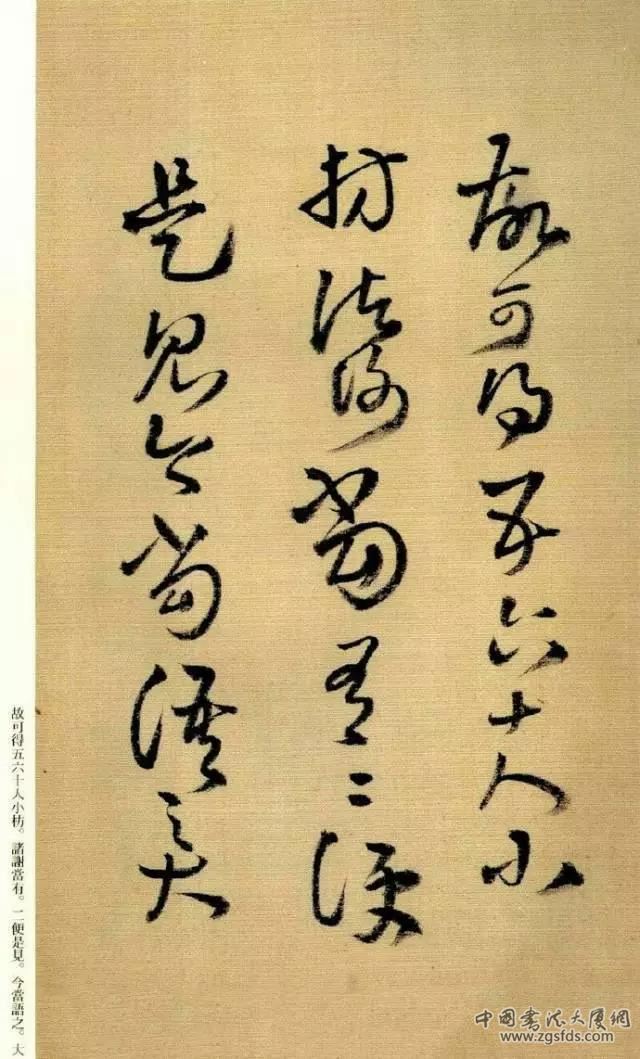 故可得五六十人小
枋諸謝當有二便
是見今當語之大
故可得五六十人小枋。諸謝當有。二便是見。今當語之。大
中国書法大厦網
www.zgsfds.com